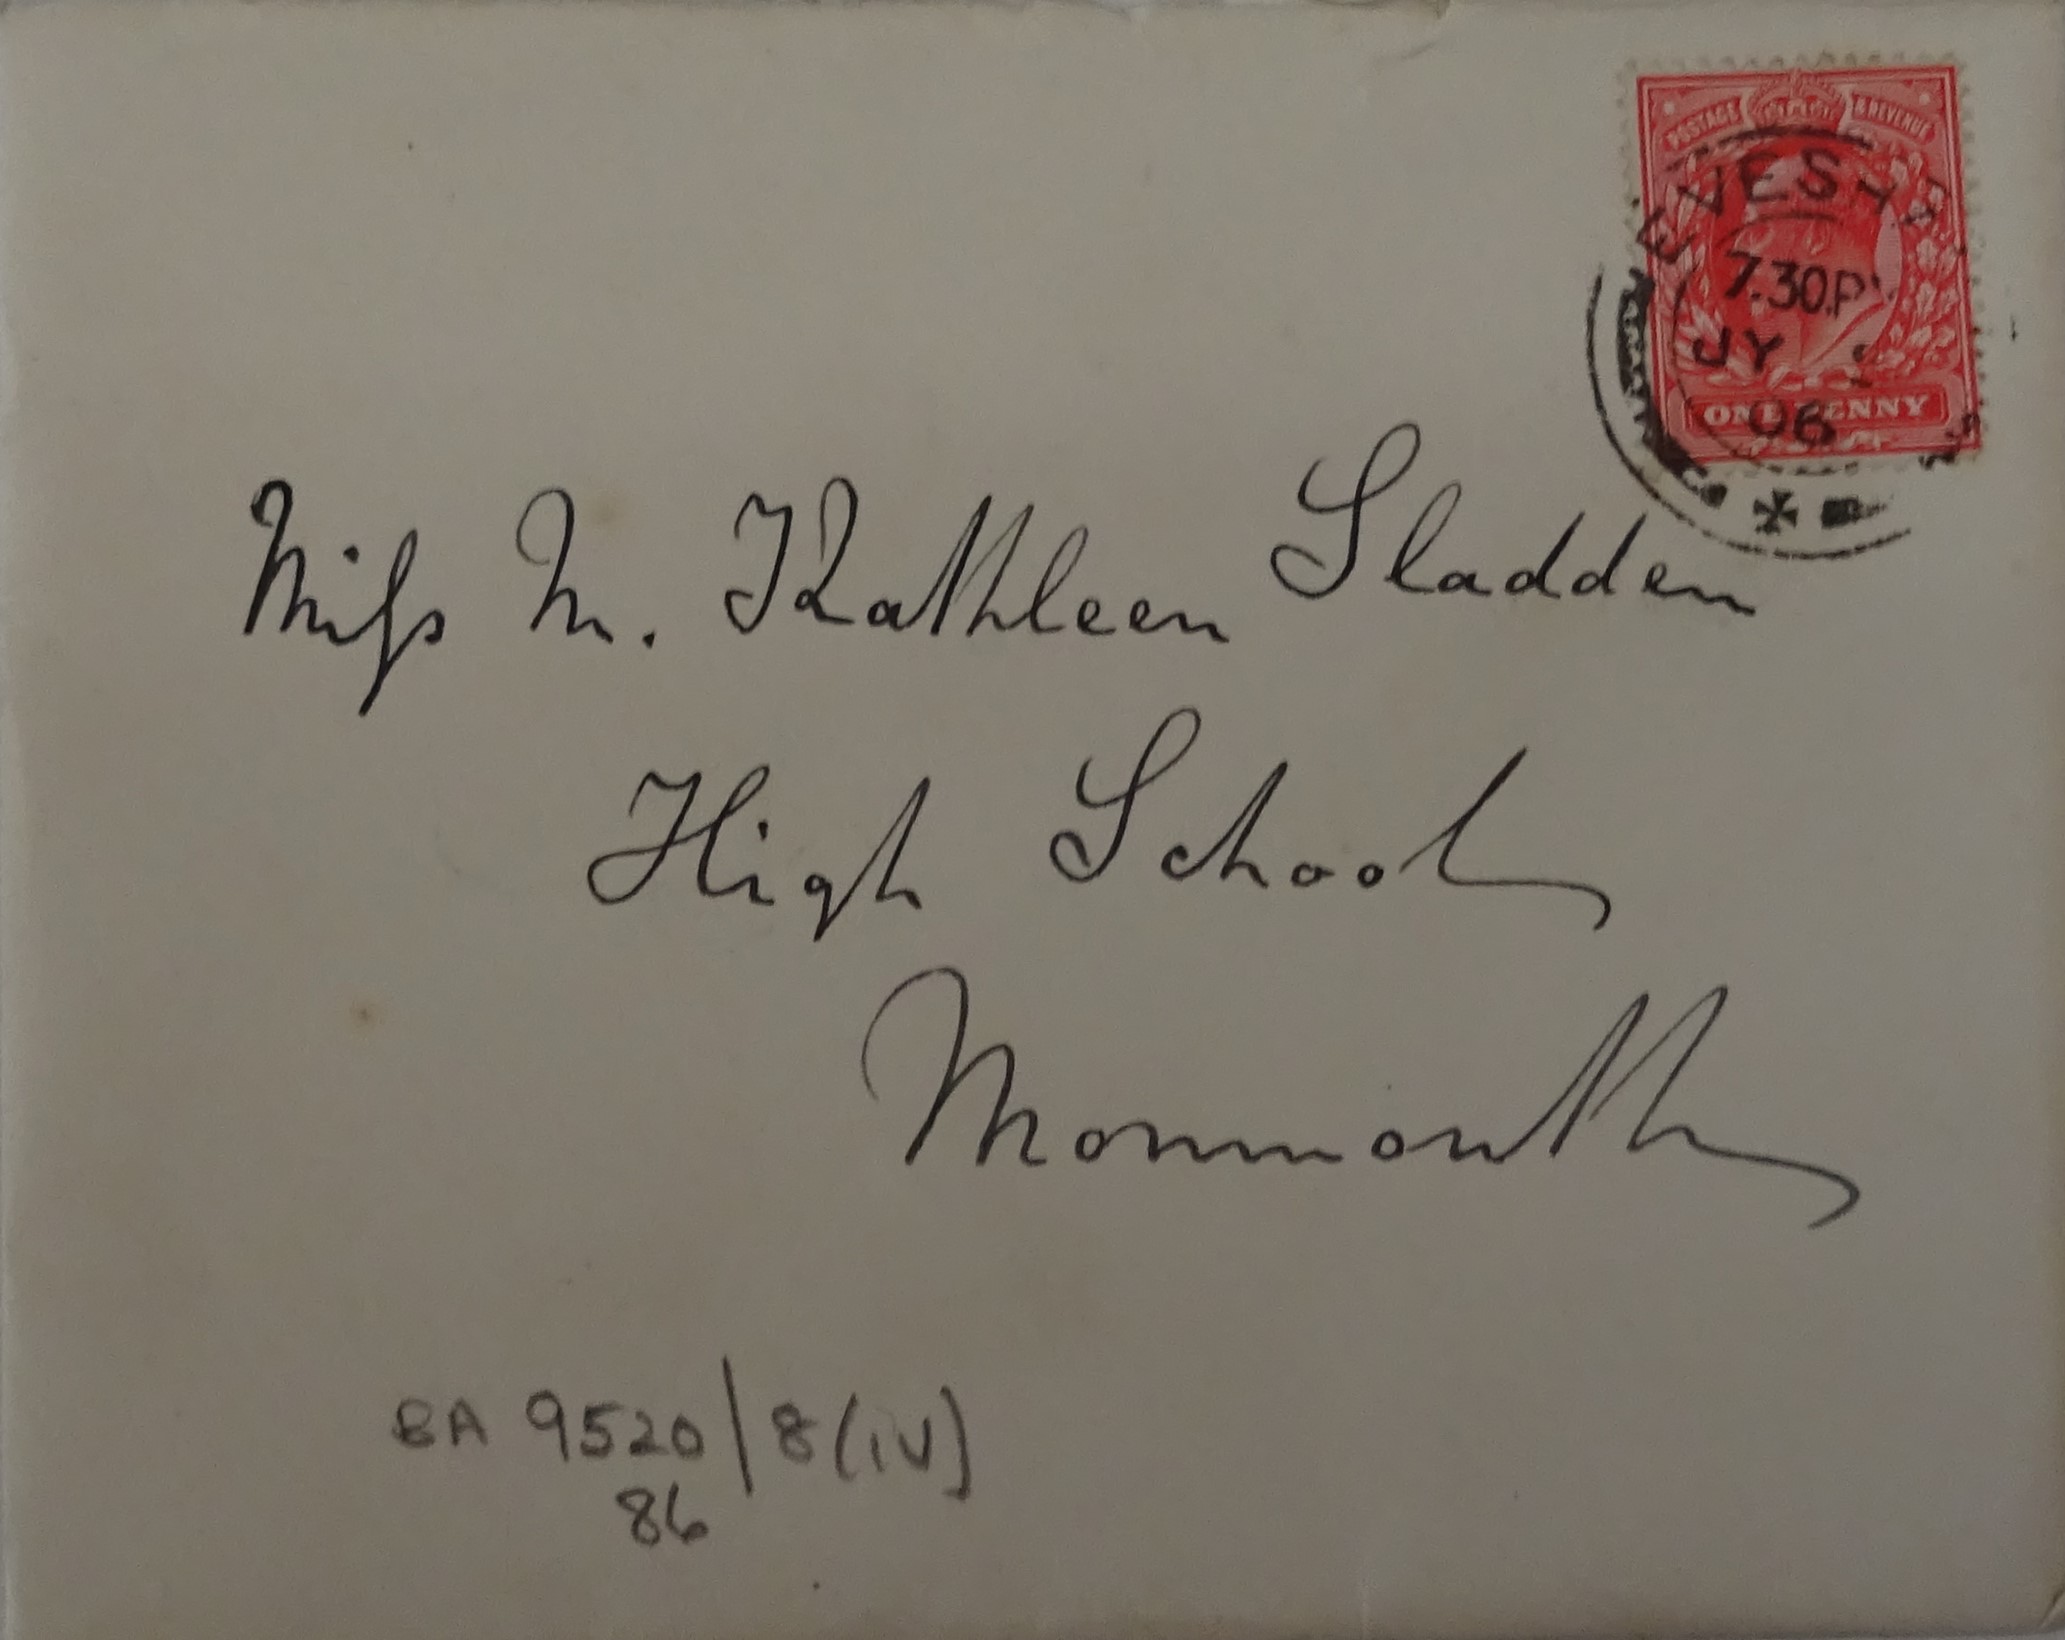 POSTAGE & REVENUE
EVESHA
7.30.P
JY
06
ONE PENNY
Miss M. Kathleen Sladden
High School
Monmouth
BA 9520/8(iv)
86